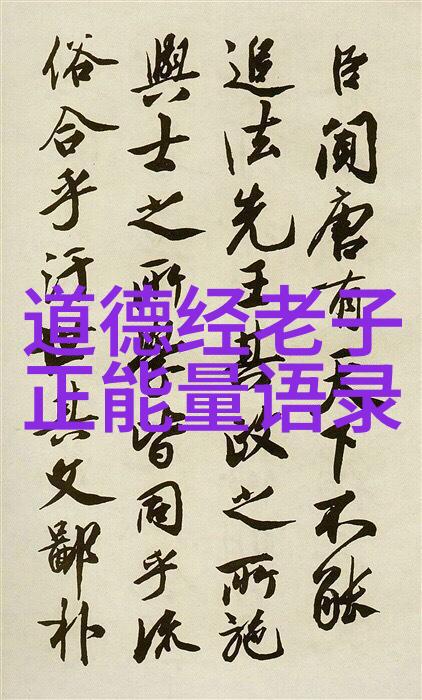 道德经老子
正能量语录
臣聞唐有天下不能
追法先王其政之所施
與士之所學皆同乎流
俗合乎汙世其文鄙朴